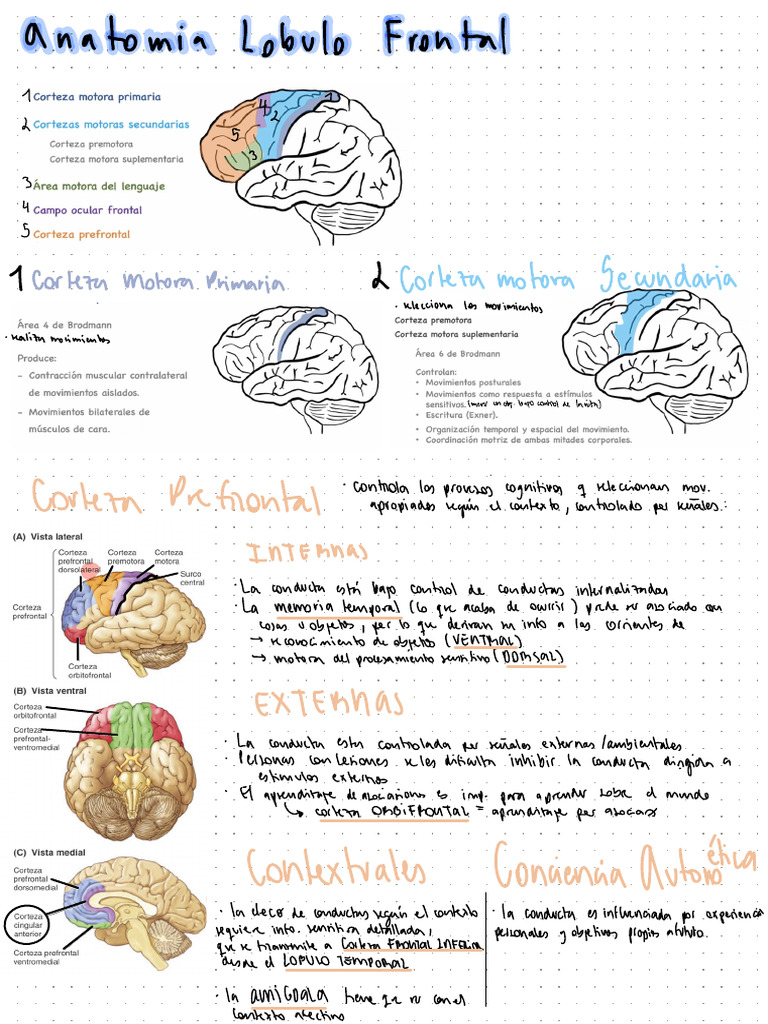 Anatomia Lobulo Frontal
1 Corteza motora primaria
2 Cortezas motoras secundarias
Corteza premotora
Corteza motora suplementaria
3 Área motora del lenguaje
4 Campo ocular frontal
5 Corteza prefrontal
1
2
3
4
5
1 Corteza Motora Primaria
Área 4 de Brodmann
· realiza movimientos
Produce:
– Contracción muscular contralateral
de movimientos aislados.
– Movimientos bilaterales de
músculos de cara.
2 Corteza motora Secundaria
· selecciona los movimientos
Corteza premotora
Corteza motora suplementaria
Área 6 de Brodmann
Controlan:
• Movimientos posturales
• Movimientos como respuesta a estímulos
sensitivos. (mover un obj. bajo control de la vista)
• Escritura (Exner).
• Organización temporal y espacial del movimiento.
• Coordinación motriz de ambas mitades corporales.
Corteza Prefrontal
· controla los procesos cognitivos q seleccionan mov.
apropiados según el contexto, controlado por señales:
(A) Vista lateral
Corteza
prefrontal
dorsolateral
Corteza
premotora
Corteza
motora
Surco
central
Corteza
prefrontal
Corteza
orbitofrontal
INTERNAS
· La conducta está bajo control de conductas internalizadas
· La memoria temporal (lo que acaba de ocurrir) puede ser asociado con
cosas u objetos, por lo que derivan su info a las corrientes de
→ reconocimiento de objetos (VENTRAL)
→ motora del procesamiento sensitivo (DORSAL)
(B) Vista ventral
Corteza
orbitofrontal
Corteza
prefrontal-
ventromedial
EXTERNAS
· La conducta esta controlada por señales externas/ambientales.
· Personas con lesiones se les dificulta inhibir la conducta dirigida a
estimulos externos
· El aprendizaje de asociaciones es imp. para aprender sobre el mundo
↳ corteza ORBIFRONTAL = aprendizaje por asociar
(C) Vista medial
Corteza
prefrontal
dorsomedial
Corteza
cingular
anterior
Corteza prefrontal
ventromedial
Contextuales
· la elecc de conductas según el contexto
requiere info. sensitiva detallada,
que se transmite a Corteza FRONTAL INFERIOR
desde el LOBULO TEMPORAL
· la AMIGDALA tiene que ver con el
contexto afectivo
Conciencia Autonoética
· la conducta es influenciada por experiencias
personales y objetivos propios a futuro.